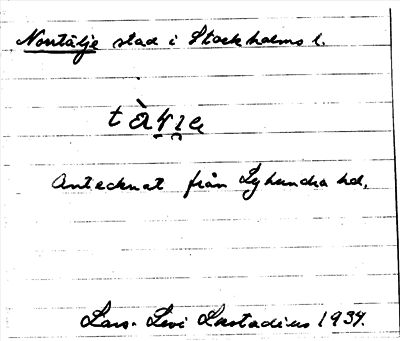 Norrtälje stad i Stockholms l.
Antecknat från Lyhundra hd.
Lars-Levi Læstadius 1934.